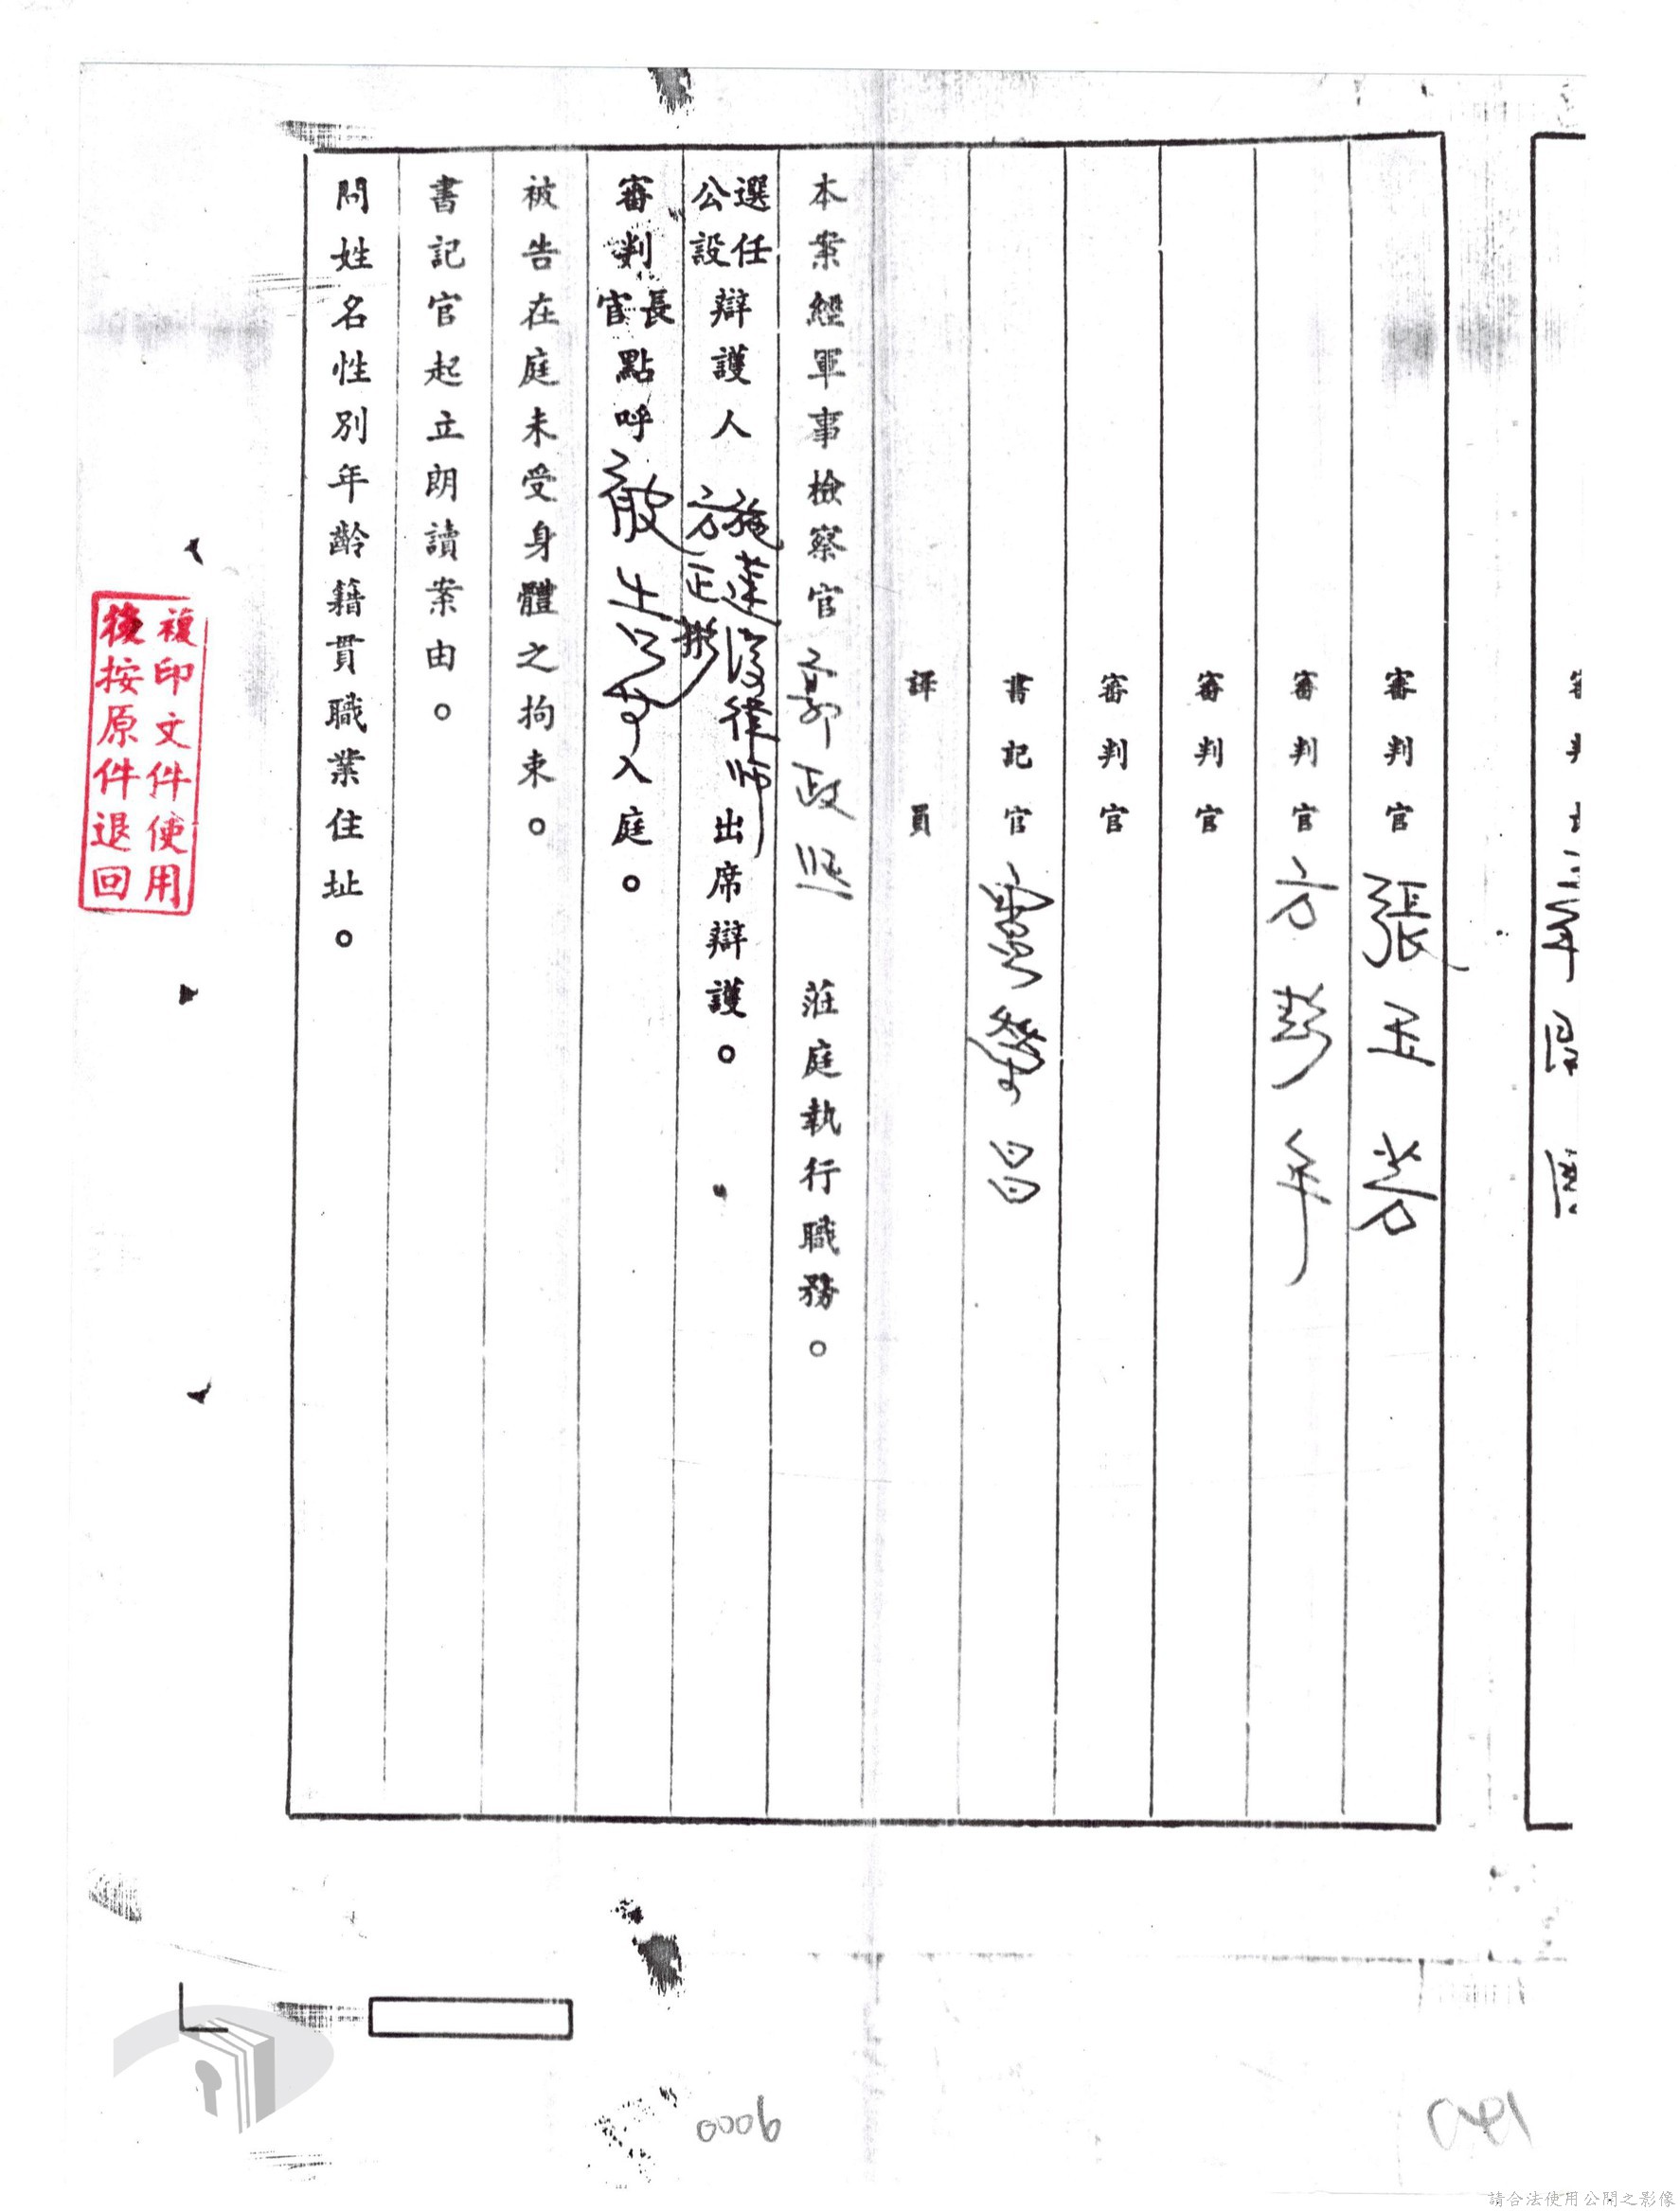 審判官 張玉芳
審判官 方彭年
審判官
審判官
書記官 昌
譯員
本案經軍事檢察官 郭政熙 蒞庭執行職務。
選任公設辯護人 方正彬 律師出席辯護。
審判官長點呼被告 入庭。
被告在庭未受身體之拘束。
書記官起立朗讀案由。
問姓名性別年齡籍貫職業住址。
複印文件使用
後按原件退回
0006
請合法使用公開之影像